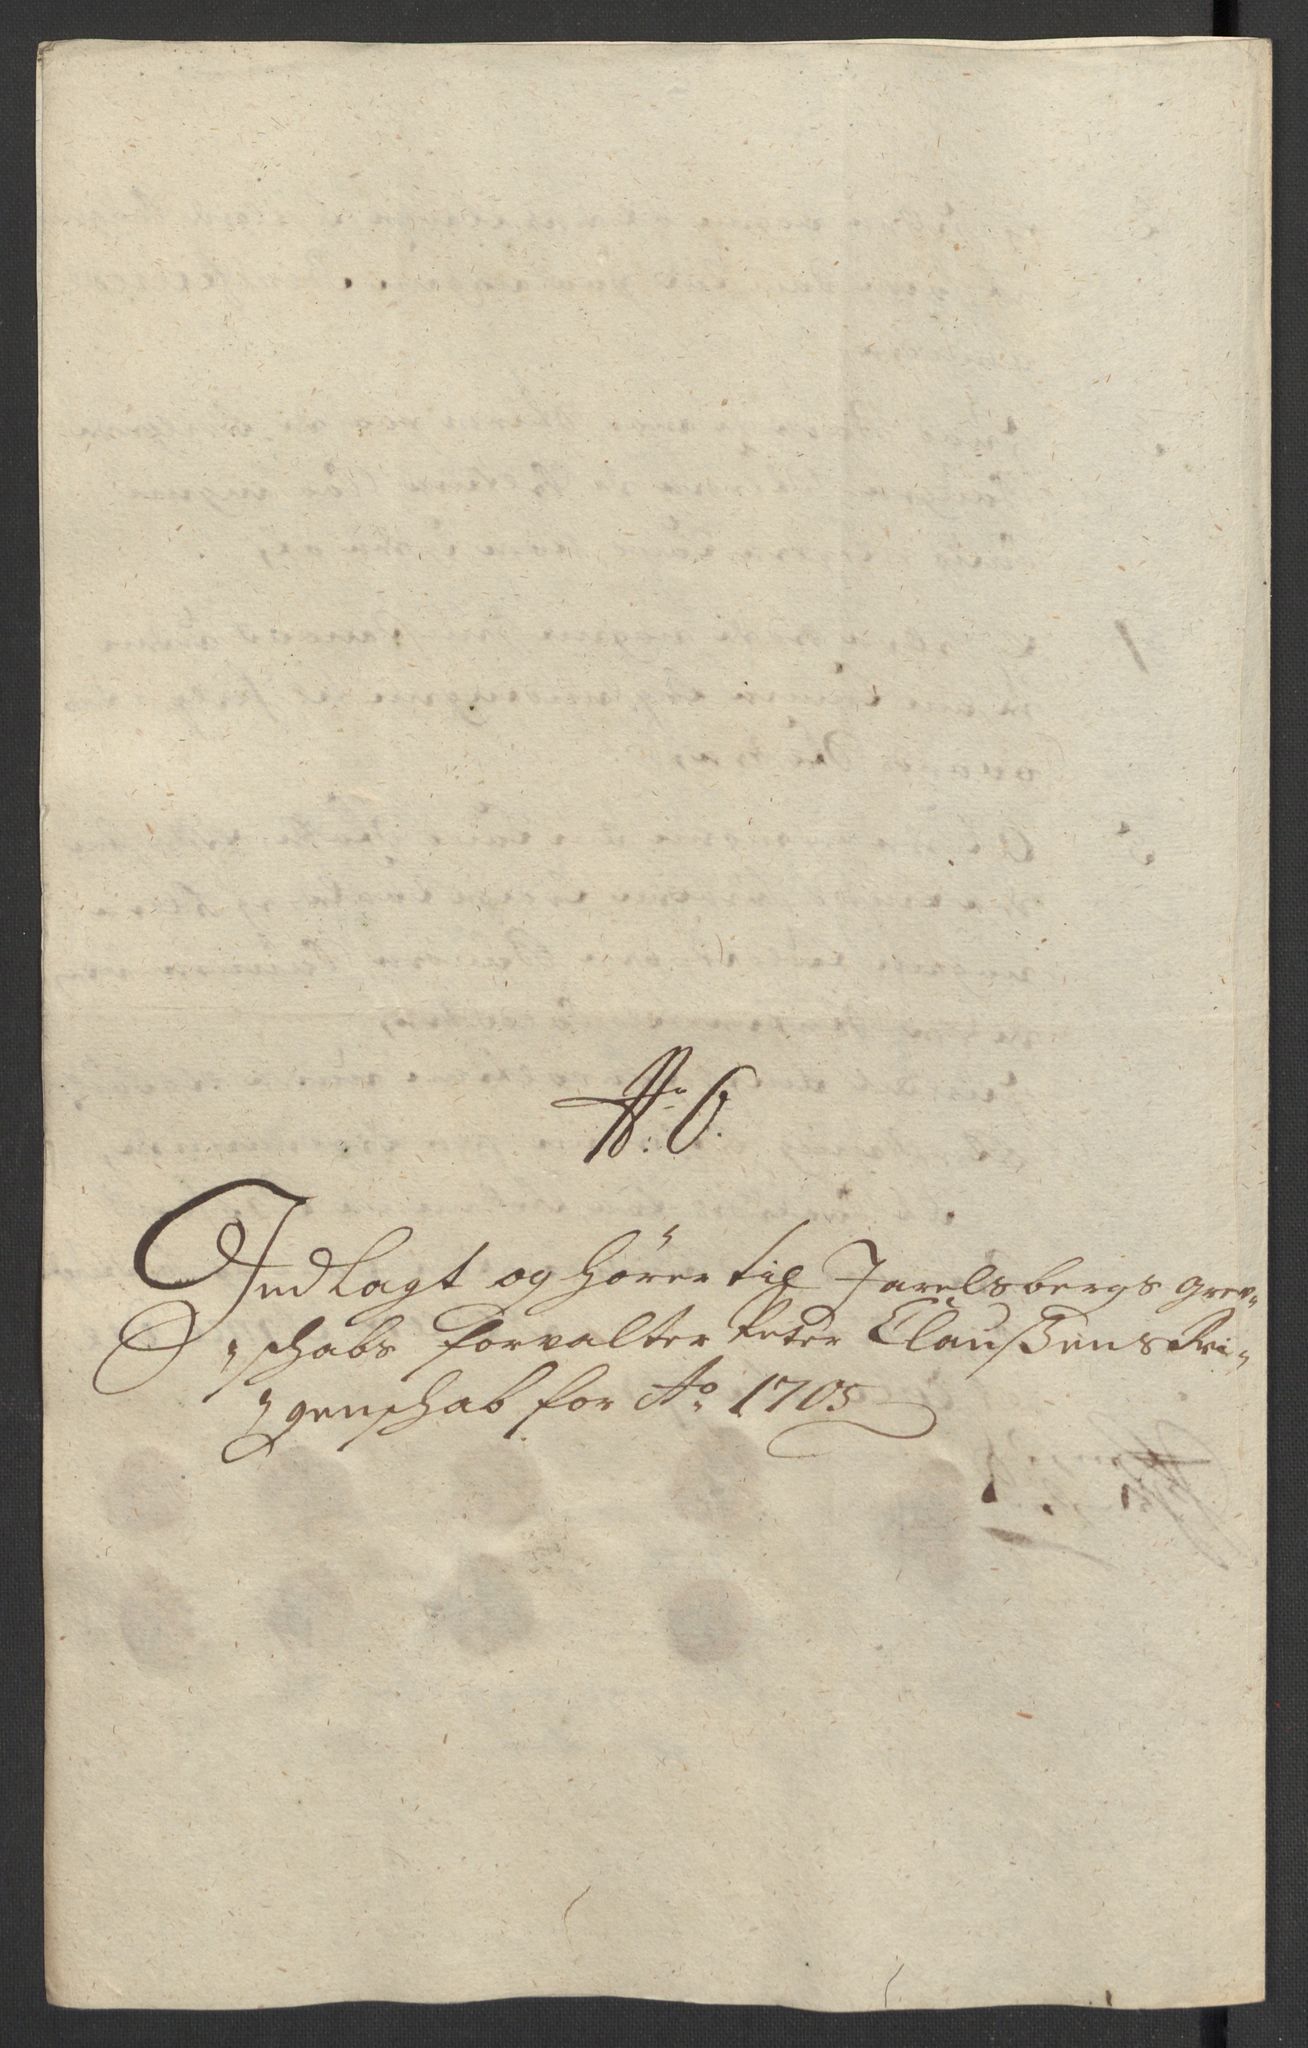 No. 6.
Indlagt og hörer til Jarelsbergs grev-
schabs forvalter Peter Claussens Rei-
genschab for Ao. 1705